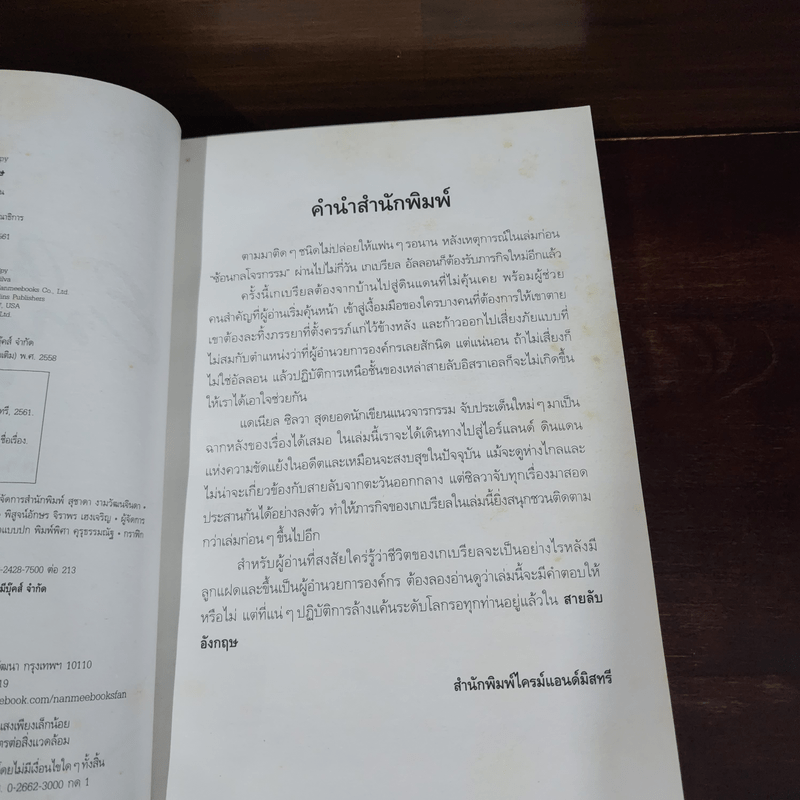 py
น
ณาธิการ
561
py
lva
anmeebooks Co., Ltd.
ins Publishers
, USA
Ltd.
บุ๊คส์ จำกัด
เติม) พ.ศ. 2558
ทรี, 2561.
ชื่อเรื่อง.
จัดการสำนักพิมพ์ สุชาดา งามวัฒนจินดา •
พิสูจน์อักษร จิราพร เฮงเจริญ • ผู้จัดการ
แบบปก พิมพ์พิศา คุรุธรรมณัฐ • กราฟิก
-2428-7500 ต่อ 213
มีบุ๊คส์ จำกัด
วัฒนา กรุงเทพฯ 10110
19
ebook.com/nanmeebooksfan
แสงเพียงเล็กน้อย
ตรต่อสิ่งแวดล้อม
โดยไม่มีเงื่อนไขใดๆ ทั้งสิ้น
. 0-2662-3000 กด 1
คำนำสำนักพิมพ์
ตามมาติดๆ ชนิดไม่ปล่อยให้แฟนๆ รอนาน หลังเหตุการณ์ในเล่มก่อน
"ซ้อนกลโจรกรรม" ผ่านไปไม่กี่วัน เกเบรียล อัลลอนก็ต้องรับภารกิจใหม่อีกแล้ว
ครั้งนี้เกเบรียลต้องจากบ้านไปสู่ดินแดนที่ไม่คุ้นเคย พร้อมผู้ช่วย
คนสำคัญที่ผู้อ่านเริ่มคุ้นหน้า เข้าสู่เงื้อมมือของใครบางคนที่ต้องการให้เขาตาย
เขาต้องละทิ้งภรรยาที่ตั้งครรภ์แก่ไว้ข้างหลัง และก้าวออกไปเสี่ยงภัยแบบที่
ไม่สมกับตำแหน่งว่าที่ผู้อำนวยการองค์กรเลยสักนิด แต่แน่นอน ถ้าไม่เสี่ยงก็
ไม่ใช่อัลลอน แล้วปฏิบัติการเหนือชั้นของเหล่าสายลับอิสราเอลก็จะไม่เกิดขึ้น
ให้เราได้เอาใจช่วยกัน
แดเนียล ซิลวา สุดยอดนักเขียนแนวจารกรรม จับประเด็นใหม่ๆ มาเป็น
ฉากหลังของเรื่องได้เสมอ ในเล่มนี้เราจะได้เดินทางไปสู่ไอร์แลนด์ ดินแดน
แห่งความขัดแย้งในอดีตและเหมือนจะสงบสุขในปัจจุบัน แม้จะดูห่างไกลและ
ไม่น่าจะเกี่ยวข้องกับสายลับจากตะวันออกกลาง แต่ซิลวาจับทุกเรื่องมาสอด
ประสานกันได้อย่างลงตัว ทำให้ภารกิจของเกเบรียลในเล่มนี้ยิ่งสนุกชวนติดตาม
กว่าเล่มก่อนๆ ขึ้นไปอีก
สำหรับผู้อ่านที่สงสัยใคร่รู้ว่าชีวิตของเกเบรียลจะเป็นอย่างไรหลังมี
ลูกแฝดและขึ้นเป็นผู้อำนวยการองค์กร ต้องลองอ่านดูว่าเล่มนี้จะมีคำตอบให้
หรือไม่ แต่ที่แน่ๆ ปฏิบัติการล้างแค้นระดับโลกรอทุกท่านอยู่แล้วใน สายลับ
อังกฤษ
สำนักพิมพ์ไครม์แอนด์มิสทรี